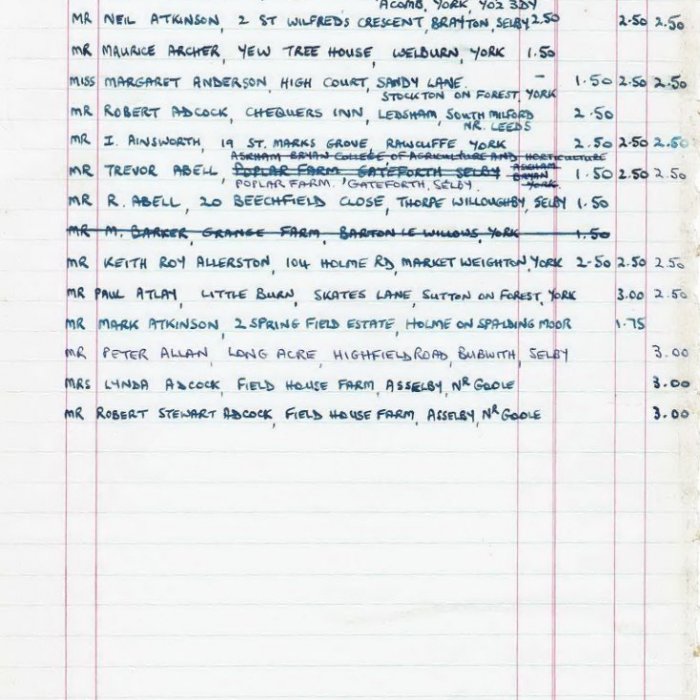 ACOMB, YORK, YO2 3DY
MR NEIL ATKINSON, 2 ST WILFREDS CRESCENT, BRAYTON, SELBY 2.50 2.50 2.50
MR MAURICE ARCHER, YEW TREE HOUSE, WELBURN, YORK 1.50
MISS MARGARET ANDERSON, HIGH COURT, SANDY LANE. - 1.50 2.50 2.50
STOCKTON ON FOREST, YORK
MR ROBERT ADCOCK, CHEQUERS INN, LEDSHAM, SOUTH MILFORD 2.50
NR. LEEDS
MR I. AINSWORTH, 19 ST. MARKS GROVE, RAWCLIFFE YORK 2.50 2.50 2.50
ASKHAM BRYAN COLLEGE OF AGRICULTURE AND HORTICULTURE
MR TREVOR ABELL, POPLAR FARM GATEFORTH SELBY ASKHAM BRYAN YORK. 1.50 2.50 2.50
POPLAR FARM. GATEFORTH, SELBY.
MR R. ABELL, 20 BEECHFIELD CLOSE, THORPE WILLOUGHBY, SELBY 1.50
MR M. BARKER, GRANGE FARM, BARTON LE WILLOWS, YORK 1.50
MR KEITH ROY ALLERSTON, 104 HOLME RD, MARKET WEIGHTON, YORK 2-50 2.50 2.50
MR PAUL ATLAY, LITTLE BURN, SKATES LANE, SUTTON ON FOREST, YORK 3.00 2.50
MR MARK ATKINSON, 2 SPRING FIELD ESTATE, HOLME ON SPALDING MOOR 1.75
MR PETER ALLAN, LONG ACRE, HIGHFIELD ROAD, BUBWITH, SELBY 3.00
MRS LYNDA ADCOCK, FIELD HOUSE FARM, ASSELBY, NR GOOLE 3.00
MR ROBERT STEWART ADCOCK, FIELD HOUSE FARM, ASSELBY, NR GOOLE 3.00